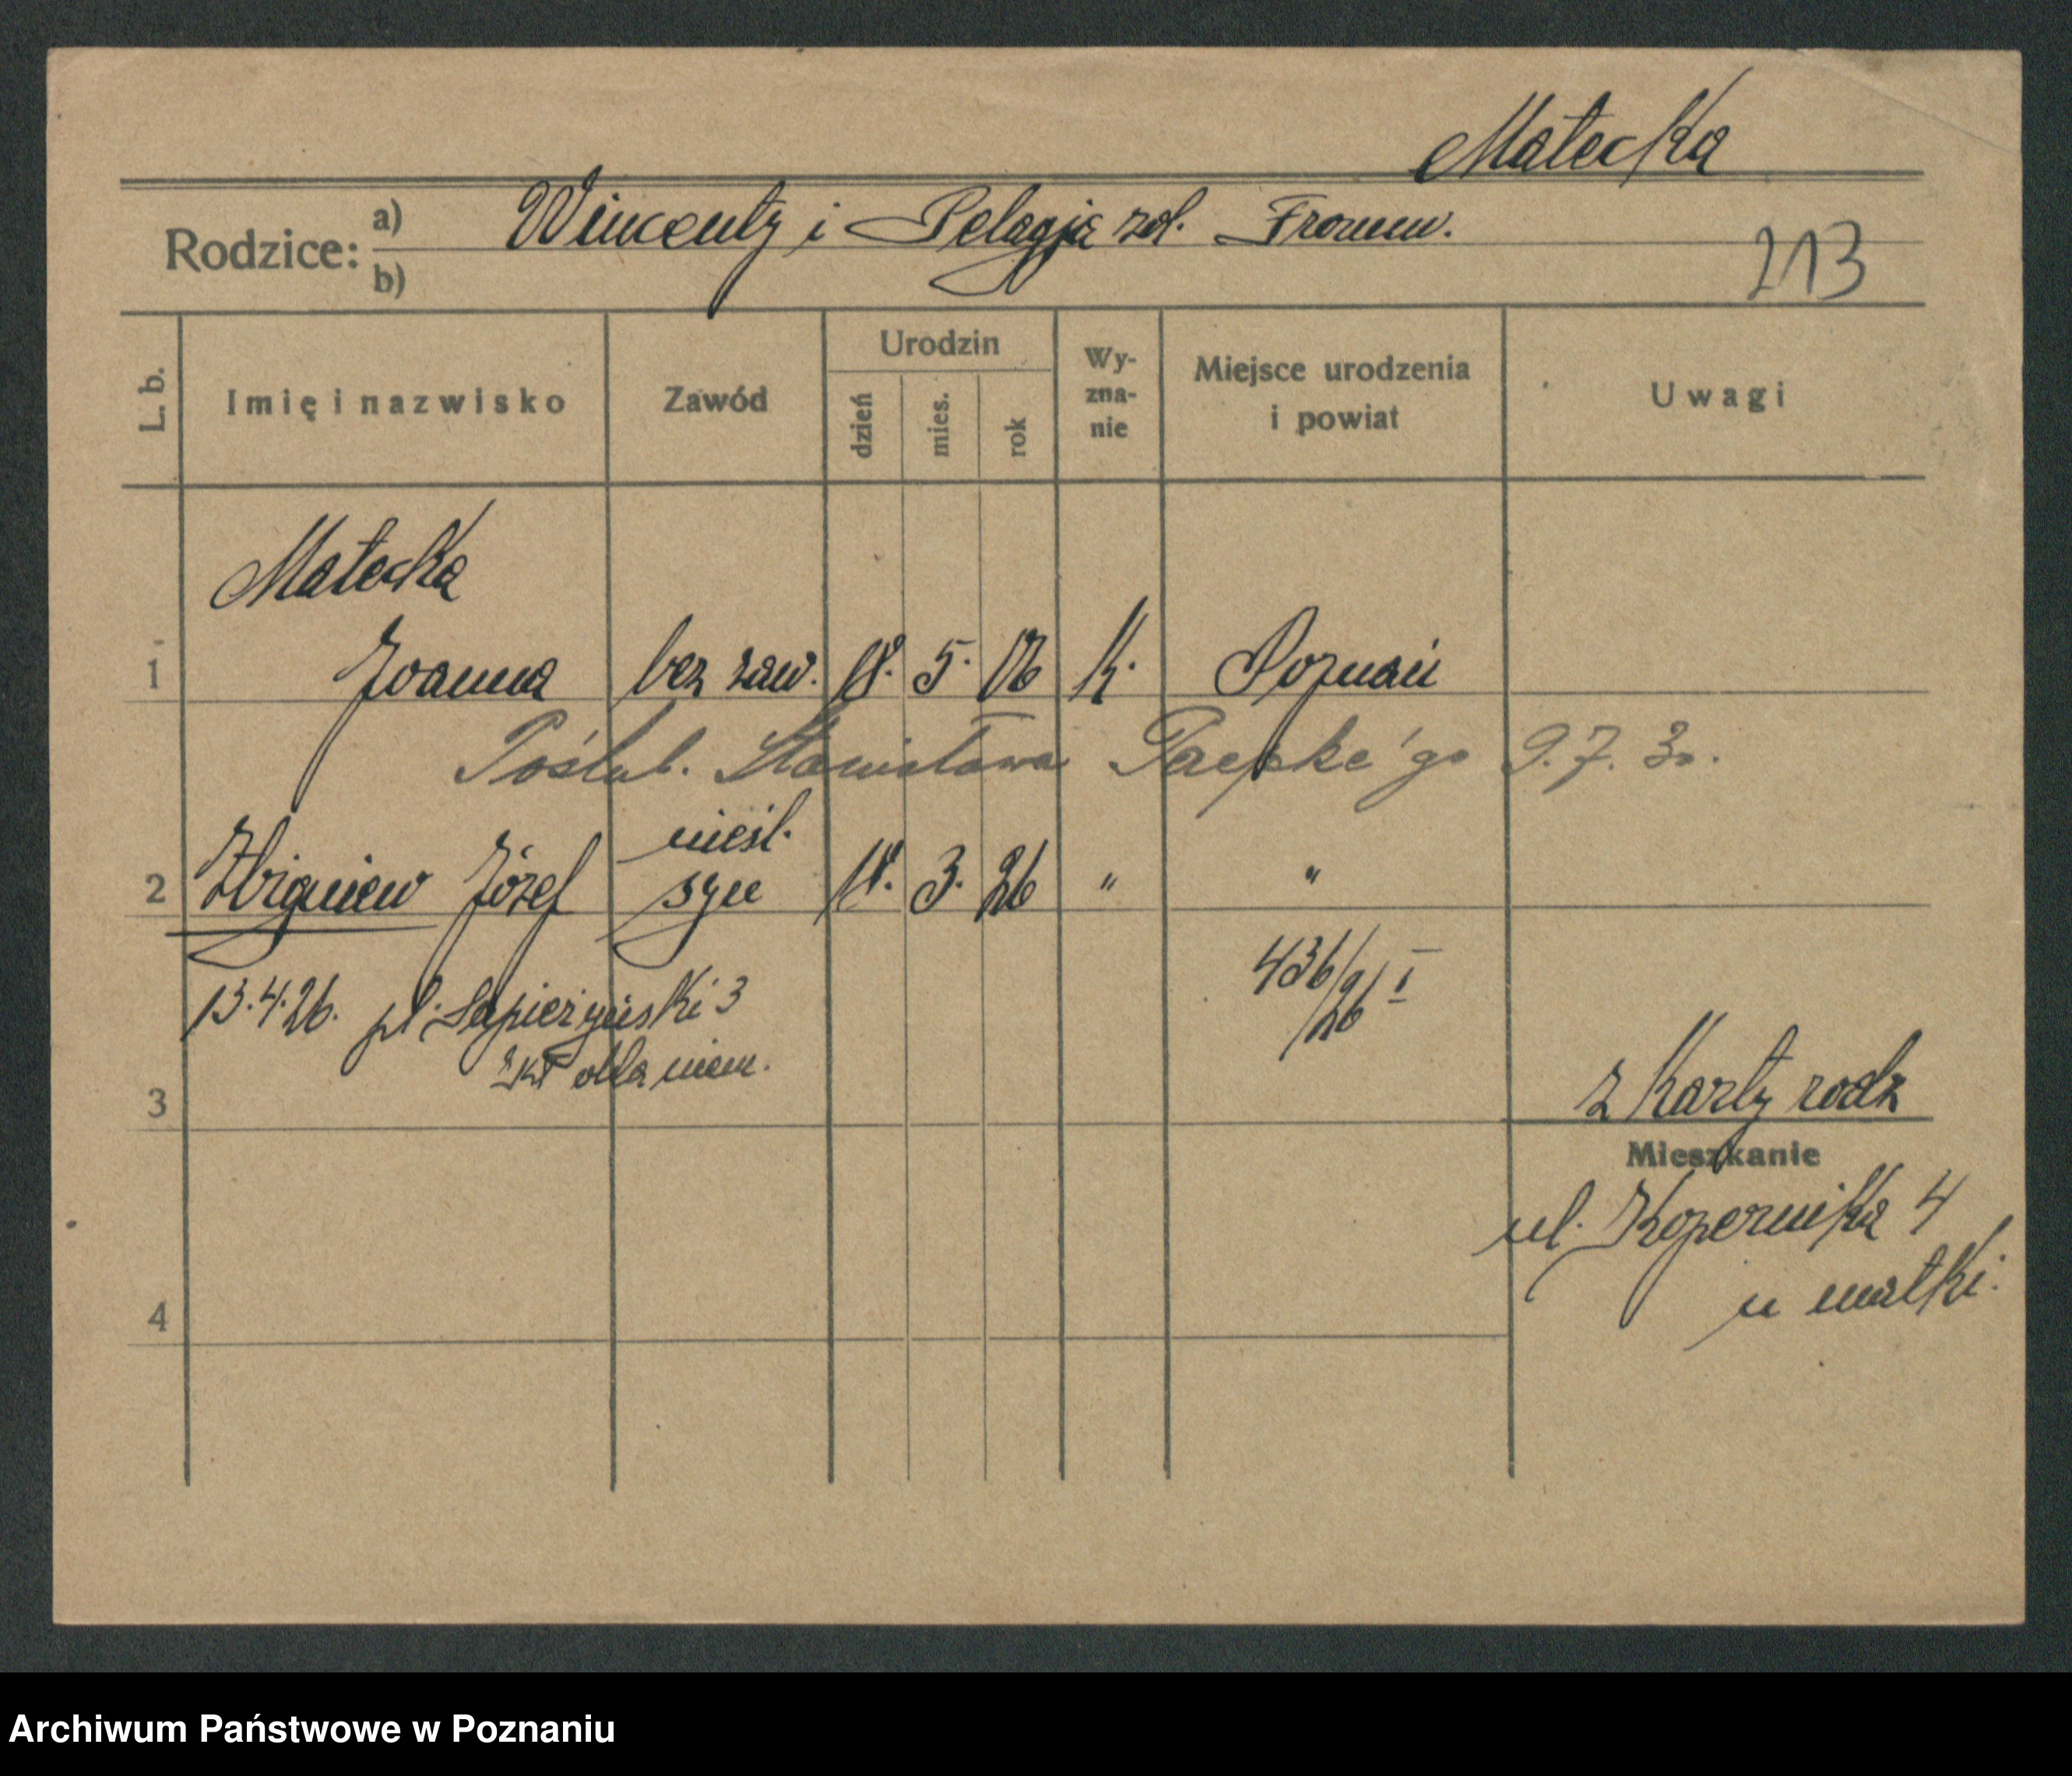 Małecka
Rodzice: a) Wincenty i Pelagja
b)
213
L. b. Imię i nazwisko Zawód Urodzin dzień mies. rok Wyznanie Miejsce urodzenia i powiat Uwagi
Małecka
1 Joanna bez zaw. 18. 5. 06 k. Poznań
Poślub. Stanisława 9.7.30.
nieśl.
2 Zbigniew Józef syn 18. 3. 26 " "
13.4.26. pl. Sapieżyński 3
436/26 I
dla niem.
3
z karty rodz
Mieszkanie
ul. Kopernika 4
u matki.
4
Archiwum Państwowe w Poznaniu